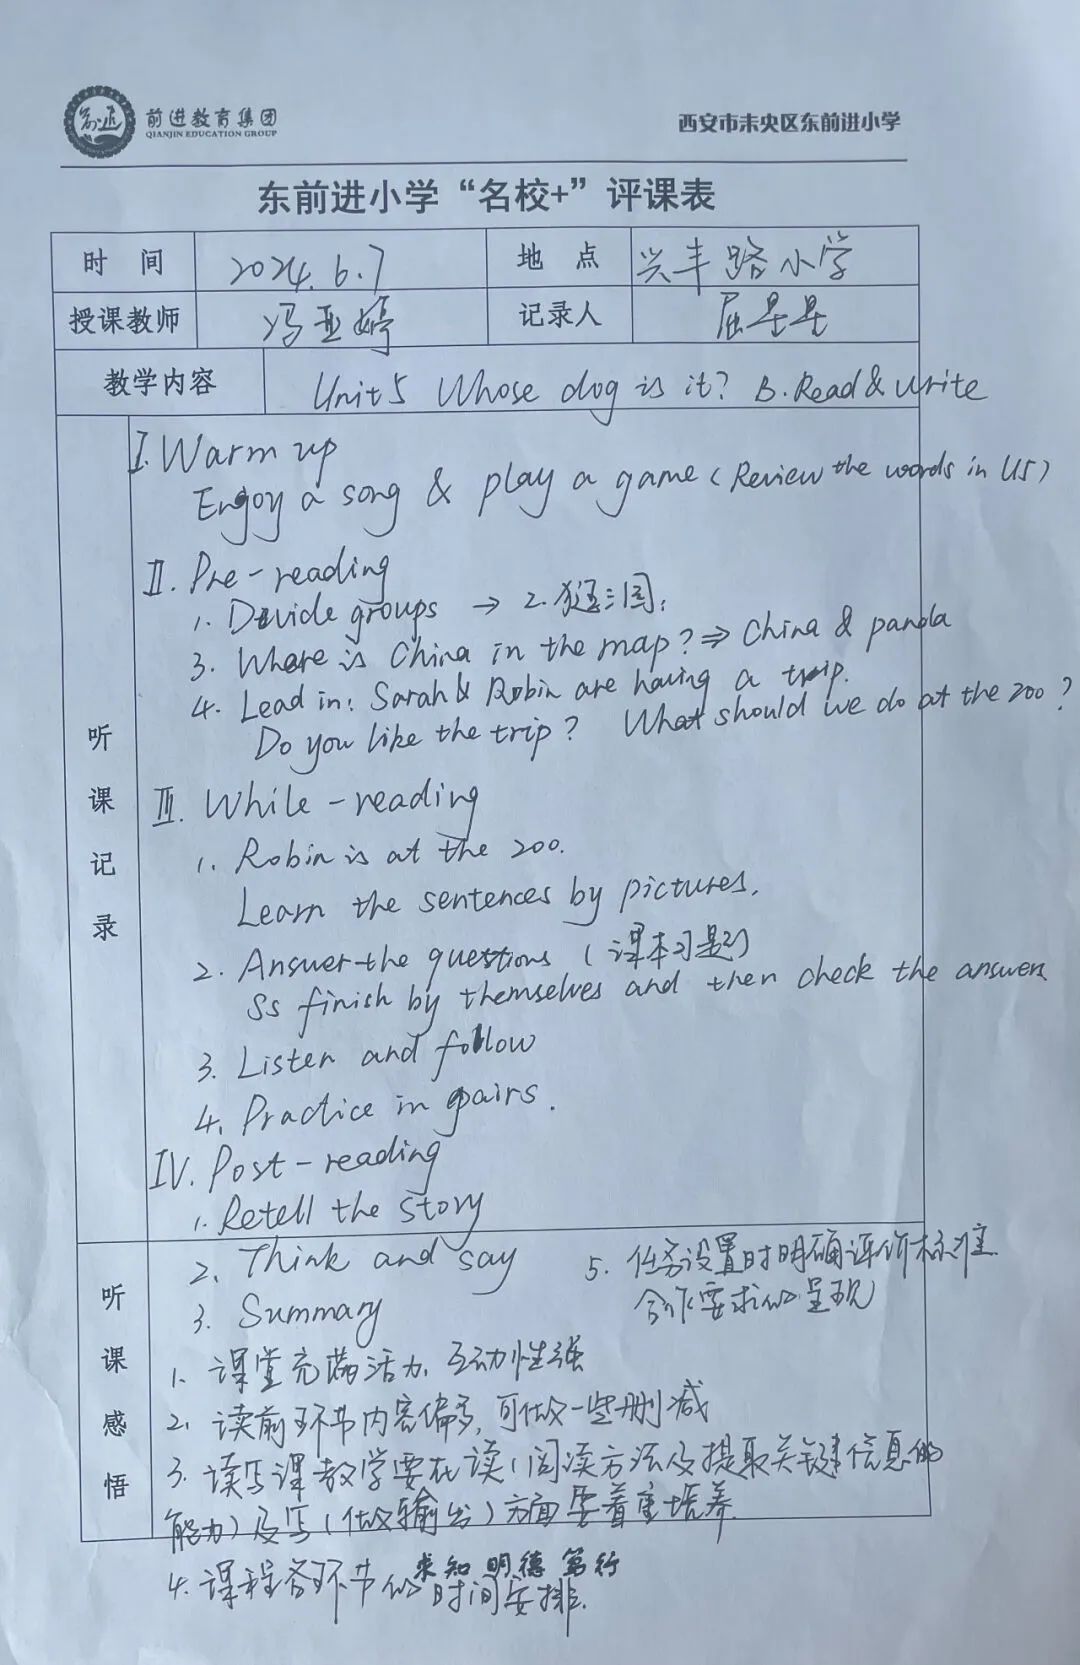 前进教育集团
QIANJIN EDUCATION GROUP
西安市未央区东前进小学
东前进小学“名校+”评课表
时 间 2024.6.7 地 点 兴丰路小学
授课教师 冯亚婷 记录人 屈星星
教学内容 Unit5 Whose dog is it? B. Read & write
听课记录
I. Warm up
Enjoy a song & play a game (Review the words in U5)
II. Pre-reading
1. Divide groups → 2.
3. Where is China in the map? ⇒ China & panda
4. Lead in: Sarah & Robin are having a trip.
Do you like the trip? What should we do at the zoo?
III. While-reading
1. Robin is at the zoo.
Learn the sentences by pictures.
2. Answer the questions (课本习题)
Ss finish by themselves and then check the answers
3. Listen and follow
4. Practice in pairs.
IV. Post-reading
1. Retell the story
2. Think and say
3. Summary
听课感悟
1. 课堂充满活力,互动性强
2. 读前环节内容偏多,可做一些删减
3. 读写课教学要在读(阅读方法及提取关键信息的
能力)及写(做输出)方面要着重培养.
4. 课程各环节的时间安排.
5. 任务设置时明确评价标准
合作要求的呈现
求知 明德 笃行